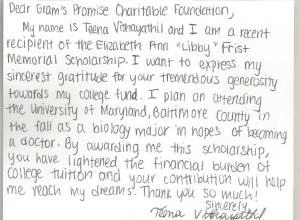 Dear Gram's Promise Charitable Foundation,
My name is Teena Vithayathil and I am a recent
recipient of the Elizabeth Ann "Libby" Frist
Memorial Scholarship. I want to express my
sincerest gratitude for your tremendous generosity
towards my college fund. I plan on attending
the University of Maryland, Baltimore County in
the fall as a biology major in hopes of becoming
a doctor. By awarding me this scholarship,
you have lightened the financial burden of
college tuition and your contribution will help
me reach my dreams. Thank you so much!
Sincerely,
Teena Vithayathil